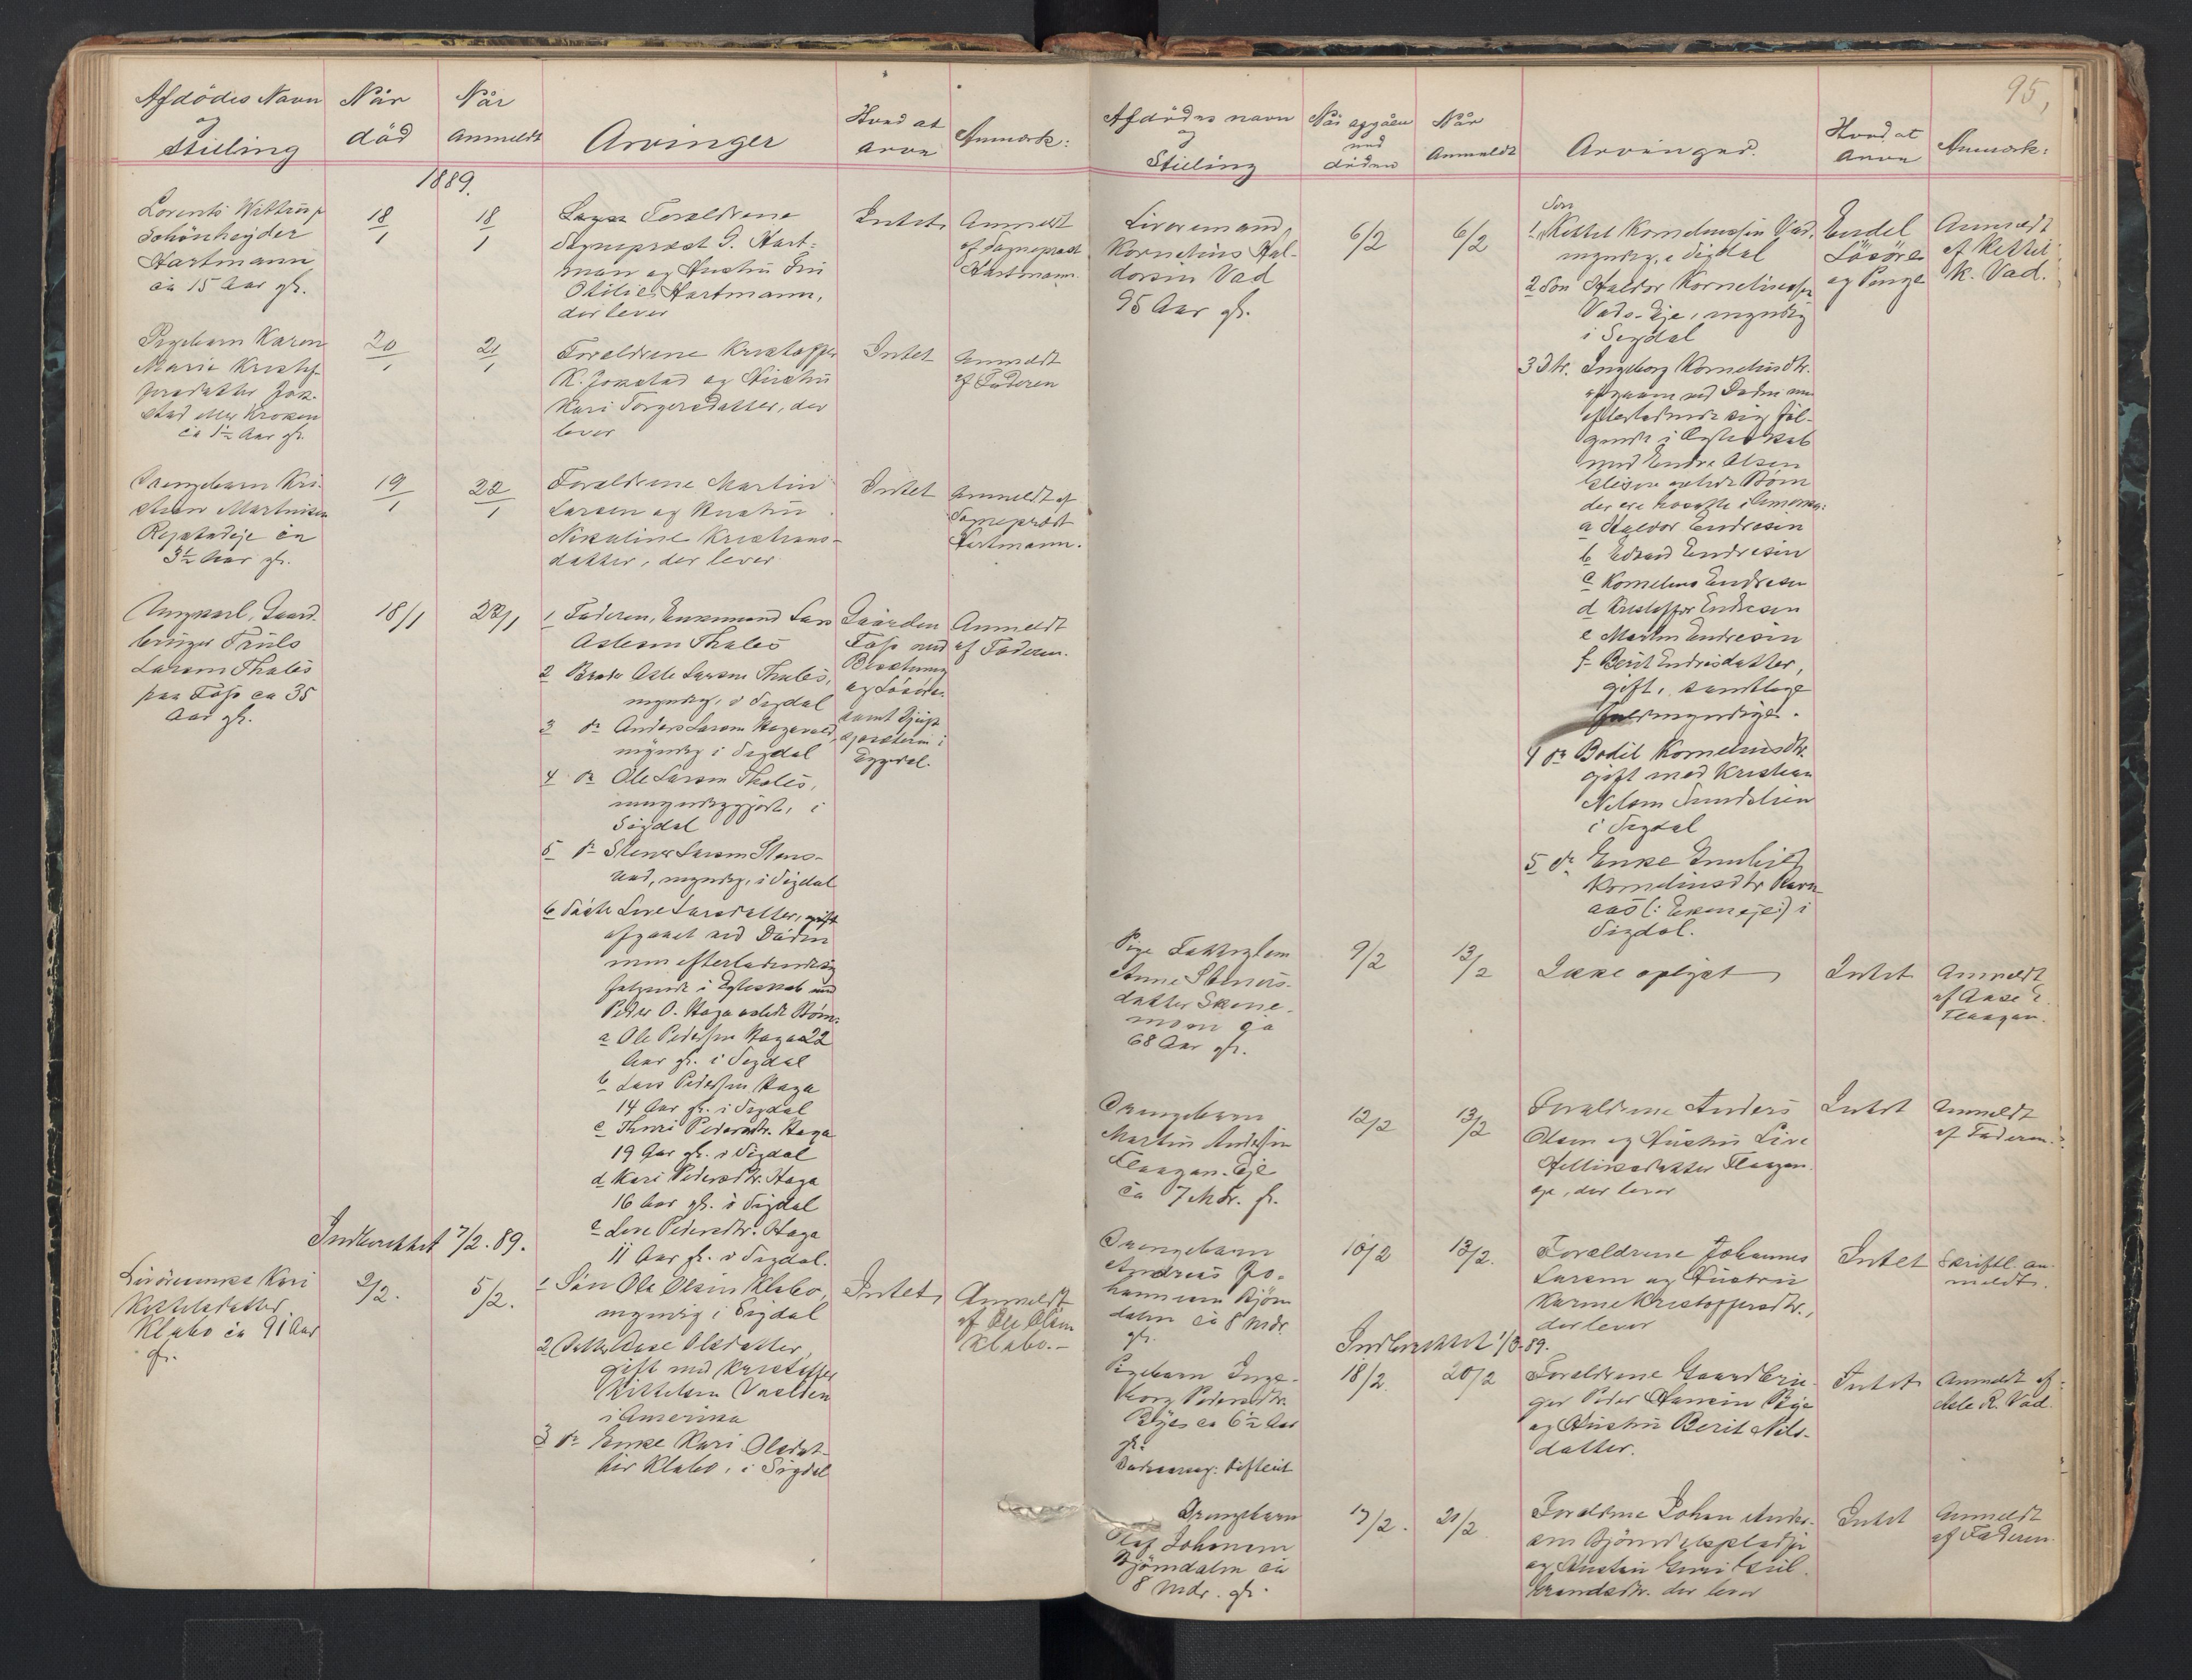 Afdödes Navn
og
Stilling
Når
död
Når
Anmeldt
Arvinger
Hvad at
arve
Anmærk:
1889.
Lorents Wittrup
Schönheyder
Hartmann
ca 15 Aar gl.
18/1
18/1
Forældrene
Sogneprest G. Hart-
man og Hustru Fru
Otilie Hartmann,
der lever
Intet
Anmeldt
af Sogneprest
Hartmann.
Pigebarn Karen
Marie Kristof-
fersdatter Jok-
stad eller Kroken
ca 1½ Aar gl.
20/1
21/1
Forældrene Kristoffer
K. Jokstad og Hustru
Kari Torgersdatter, der
lever
Intet
Anmeldt
af Faderen
Drengebarn Kri-
stian Martinsen
ca
3½ Aar gl.
19/1
22/1
Forældrene Martin
Larsen og Hustru
Nikoline Kristians-
datter, der lever
Intet
Anmeldt af
Sogneprest
Hartmann.
Ungkarl, Gaard-
bruger Truls
Larsen Thales
paa Foss ca 35
Aar gl.
18/1
22/1
1 Faderen, Enkemand Lars
Aslesen Thales
2 Broder Asle Larsen Thales,
myndig, i Sigdal
3 do Anders Larsen
myndig i Sigdal
4 do Ole Larsen Thales,
myndiggjort, i
Sigdal
5 do Stener Larsen Stens-
rud, myndig, i Sigdal
6 Söster Live Larsdatter, gift
afgaaet ved Döden
men efterladende sig
følgende i Egteskab med
Peder O. Haga avlede Börn:
a Ole Pedersen Haga 22
Aar gl. i Sigdal
b Lars Pedersen Haga
14 Aar gl. i Sigdal
c Thuri Pedersdtr. Haga
19 Aar gl. i Sigdal
d Kari Pedersdtr. Haga
16 Aar gl. i Sigdal
e Live Pedersdtr. Haga
11 Aar gl. i Sigdal.
Gaarden
Foss med
Besætning
og Lösöre
samt
i
Eggedal.
Anmeldt
af Faderen.
Indberettet 7/2. 89.
Kari
Kittelsdatter
Klabo ca 91 Aar
gl.
2/2.
5/2.
1 Sön Ole Olsen Klabo,
myndig i Sigdal
2 Datter Aase Olsdatter,
gift med Kristoffer
Kittelsen
i Amerika
3 do Enke Kari Olsdat-
ter Klabo, i Sigdal
Intet
Anmeldt
af Ole Olsen
Klabo.-
95,
Afdödes navn
og
Stilling
Når afgåen
ved
döden
Når
Anmeldt
Arvinger.
Hvad at
Arve
Anmærk:
Livöremand,
Kornelius Hal-
dorsen Vad
95 Aar gl.
6/2
6/2
Sön
1, Kittel Korneliussen Vad,
myndig, i Sigdal
2 Sön Haldor Korneliussen
Vads-Eje, myndig
i Sigdal
3 Dtr. Ingeborg Korneliusdtr.
afgaaen ved Döden men
efterladende sig föl-
gende i Egteskab
med Endre Olsen
avlede Börn
der ere bosatte i Amerika:
a Haldor Endresen
b Edvard Endresen
c Kornelius Endresen
d Kristoffer Endresen
e Martin Endresen
f Berit Endresdatter,
gift, samtlige
fuldmyndige.
4 do Bodil Korneliusdtr.
gift med Kristian
Nilsen
i Sigdal
5 do Enke Gunhild
Korneliusdtr Ravn-
aas (: Ekereje:) i
Sigdal.
Endel
Lösöre
og Penge
Anmeldt
af Kittel
K. Vad.
Pige Fattiglem
Anne Steners-
datter Skine-
moen ca
68 Aar gl.
9/2
13/2
Ikke oplyst
Intet
Anmeldt
af Aase E.
Flaagan.
Drengebarn
Martin Andersen
Flaagan-Eje
ca 7 Mdr. gl.
12/2
13/2
Forældrene Anders
Olsen og Hustru Live
Helliksdatter Flaagan-
eje, der lever
Intet
Anmeldt
af Faderen.
Drengebarn
Andreas Jo-
hannesen Björn-
dalen ca 8 Mdr.
gl.
10/2
13/2.
Forældrene Johannes
Larsen og Hustru
Karine Kristoffersdtr.,
der lever
Intet
Skriftl. an-
meldt.
Indberettet 1/3-89.
Pigebarn Inge-
borg Pedersdtr.
Bøe ca 6½ Aar
gl.
18/2.
20/2
Forældrene Gaardbru-
ger Peder Hansen
og Hustru Berit Nils-
datter.
Intet
Anmeldt af
Asle R. Vad.
Drengebarn
Olaf Johansen
Björndalen ca
8 Mdr. gl.
17/2.
21/2
Forældrene Johan Ander-
sen
og Hustru Guri Gul-
brandsdtr. der lever
Intet
Anmeldt
af Faderen.